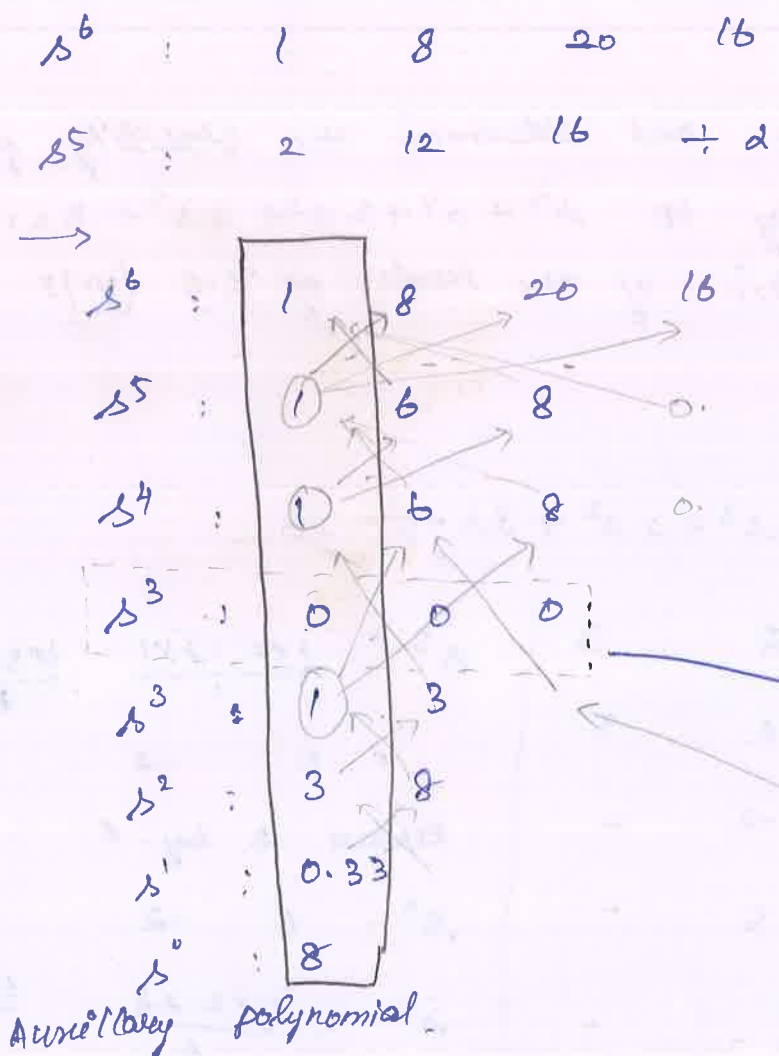 s⁶ : 1 8 20 16
s⁵ : 2 12 16 ÷ 2
→
s⁶ : 1 8 20 16
s⁵ : 1 6 8 0.
s⁴ : 1 6 8 0.
s³ : 0 0 0
s³ : 1 3
s² : 3 8
s¹ : 0.33
s⁰ : 8
Auxillary polynomial.